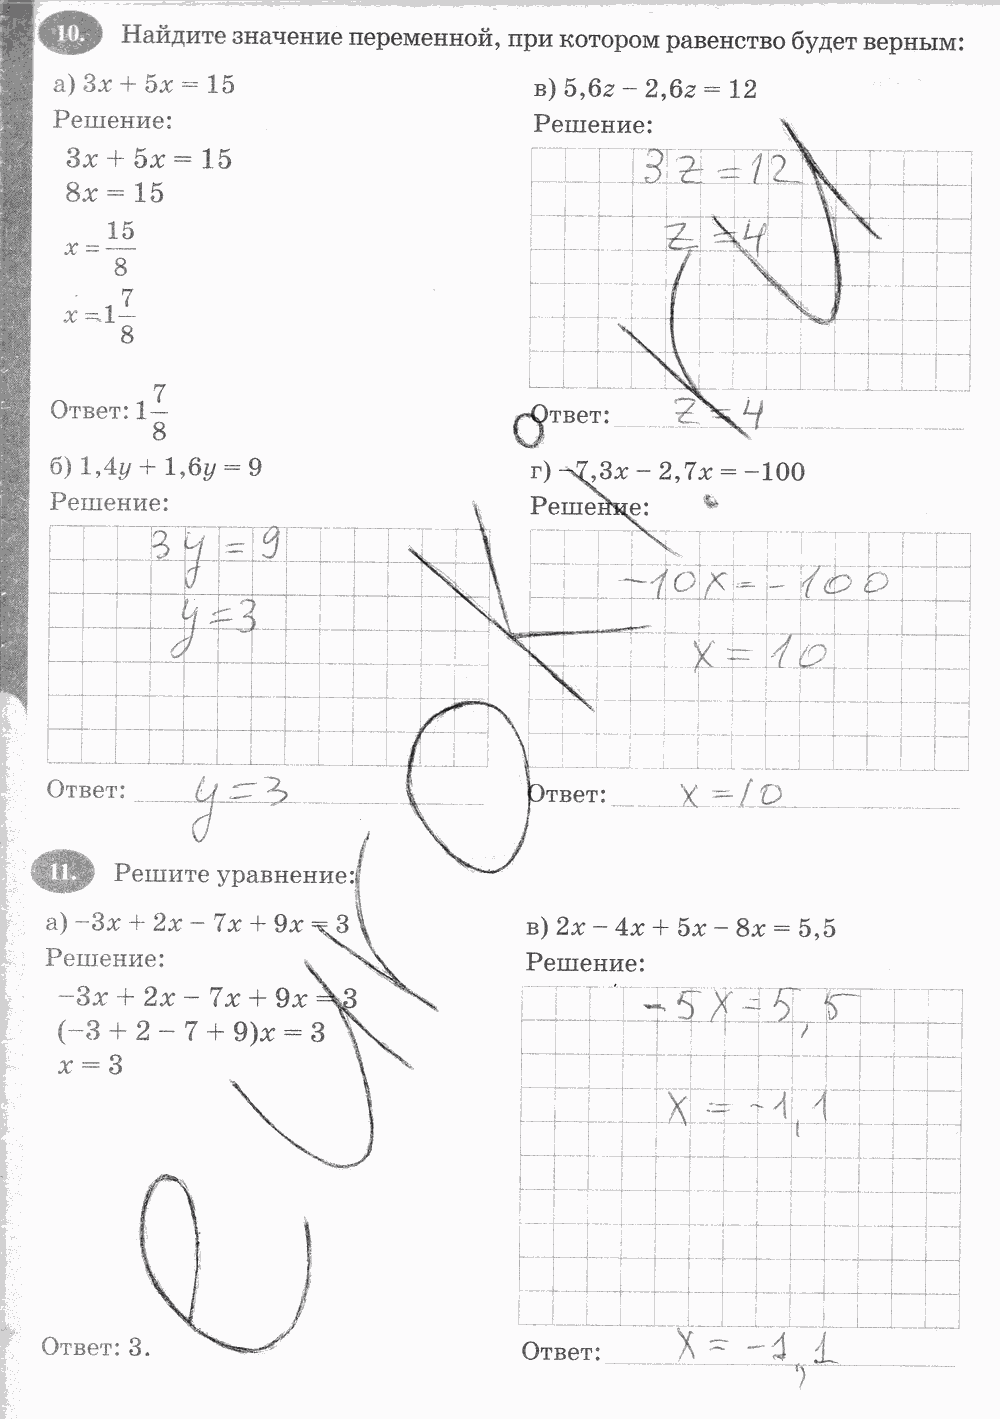 10. Найдите значение переменной, при котором равенство будет верным:
а) 3x + 5x = 15
Решение:
3x + 5x = 15
8x = 15
x = 15/8
x = 1 7/8
Ответ: 1 7/8
б) 1,4y + 1,6y = 9
Решение:
3y = 9
y = 3
Ответ: y = 3
в) 5,6z − 2,6z = 12
Решение:
3z = 12
z = 4
Ответ: z = 4
г) −7,3x − 2,7x = −100
Решение:
-10x = -100
x = 10
Ответ: x = 10
11. Решите уравнение:
а) −3x + 2x − 7x + 9x = 3
Решение:
−3x + 2x − 7x + 9x = 3
(−3 + 2 − 7 + 9)x = 3
x = 3
Ответ: 3.
в) 2x − 4x + 5x − 8x = 5,5
Решение:
-5x = 5,5
x = -1,1
Ответ: x = -1,1